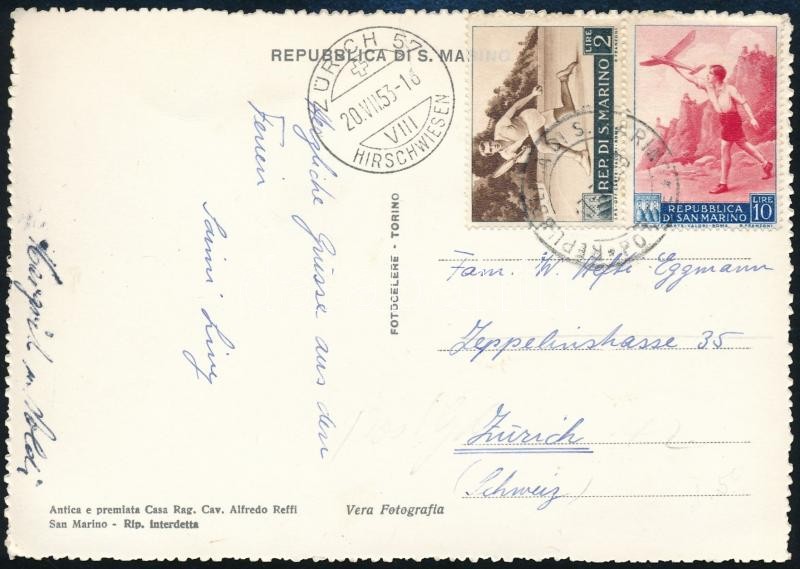 REPUBBLICA DI S. MARINO
ZÜRICH 57
20.VII.53-18
VIII
HIRSCHWIESEN
LIRE 2
REP. DI S. MARINO
REPUBBLICA
DI SAN MARINO
LIRE 10
Herzliche Grüsse aus den
Ferien
FOTOCELERE - TORINO
Fam. W. Hefti-Eggmann
Zeppelinstrasse 35
Zürich
(Schweiz)
Antica e premiata Casa Rag. Cav. Alfredo Reffi
San Marino - Rip. interdetta
Vera Fotografia